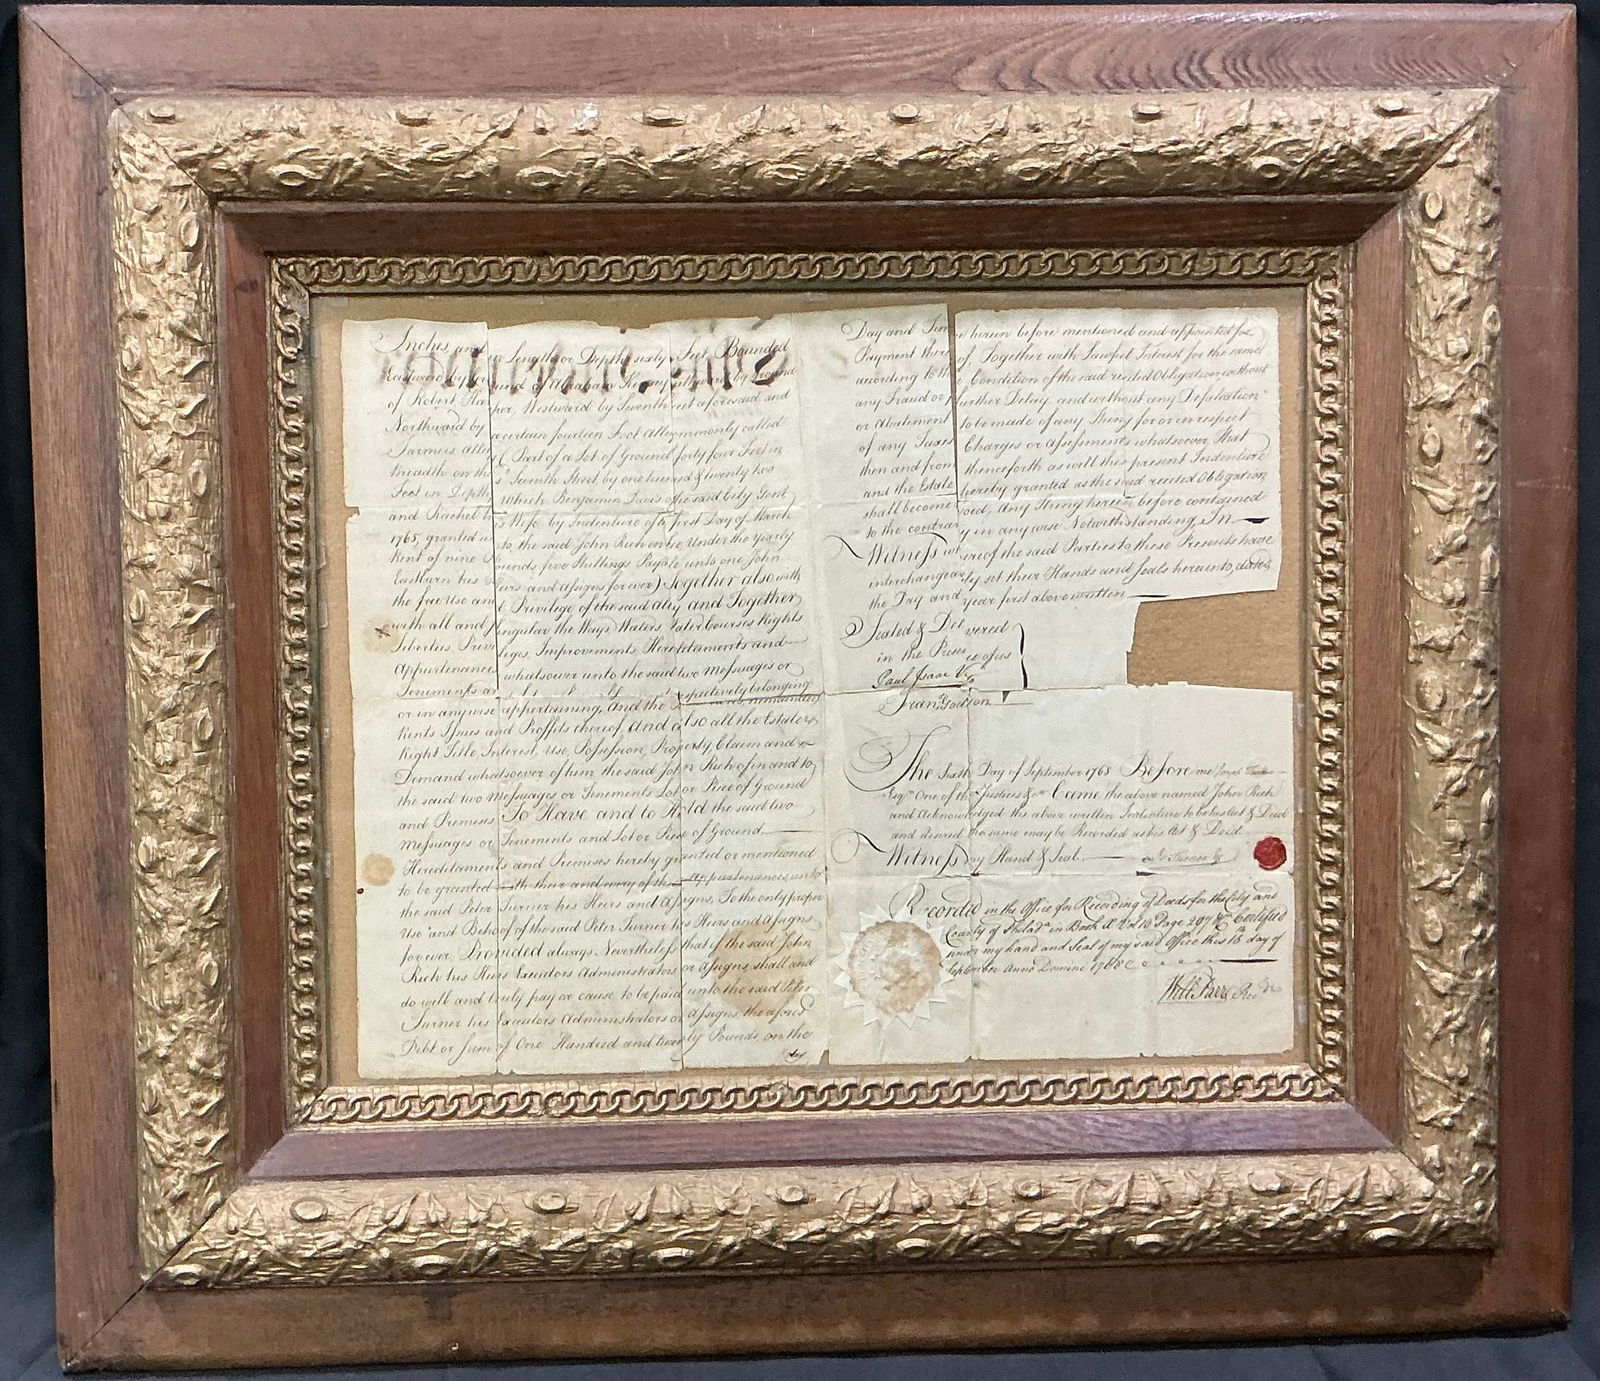 Inches and in Length or Depth sixty Feet Bounded
Eastward by Ground of Abraham by Ground
of Robert Harper, Westward by Seventh Street aforesaid and
Northward by a certain fourteen Foot Alley commonly called
Turners Alley (Part of a Lot of Ground forty four Feet in
breadth on the s.d Seventh Street by one hundred & twenty two
Feet in Depth which Benjamin of the said City Gent
and Rachel his Wife by Indenture of the first Day of March
1765, granted unto the said John Rich in Fee Under the yearly
Rent of nine Pounds five Shillings Payable unto one John
Eastburn his Heirs and Assigns for ever) Together also with
the free Use and Privilege of the said Alley and Together
with all and singular the Ways Waters Water Courses Rights
Liberties Priviliges, Improvements Hereditaments and
Appurtenances whatsoever unto the said two Messuages or
Tenements and respectively belonging
or in any wise appertaining, And the Reversions, remainders
Rents Issues and Proffits thereof, And also all the Estate
Right Title Interest, Use, Possession, Property, Claim and
Demand whatsoever of him the said John Rich of in and to
the said two Messuages or Tenements Lot or Piece of Ground
and Premises To Have and to Hold the said two
Messuages or Tenements and Lot or Piece of Ground
Hereditaments and Premises hereby granted or mentioned
to be granted with their and every of their Appurtenances, unto
the said Peter Turner his Heirs and Assigns, To the only proper
Use and Behoof of the said Peter Turner his Heirs and Assigns
for ever Provided always Nevertheless that if the said John
Rich his Heirs Executors Administrators or Assigns, shall and
do well and truly pay or cause to be paid unto the said Peter
Turner his Executors Administrators or Assigns the aforesd
Debt or Sum of One Hundred and twenty Pounds, on the
day
Day and Time herein before mentioned and appointed for
Payment thereof Together with Lawful Interest for the same
according to the Condition of the said recited Obligation without
any Fraud or further Delay and without any Defalcation
or Abatement to be made of any Thing for or in respect
of any Taxes Charges or Assessments whatsoever, that
then and from thenceforth as well this present Indenture
and the Estate hereby granted as the said recited Obligation
shall become void, Any Thing herein before contained
to the contrary in any wise Notwithstanding, In
Witness whereof the said Parties to these Presents have
interchangeably set their Hands and Seals hereunto, dated
the Day and year first above written
Sealed & Delivered
in the Presence of us
Paul Isaac Voto
Fran.s Hodson
The Sixth Day of September 1768 Before me
Esq.r One of the Justices &c Came the above named John Rich
and Acknowledged the above written Indenture to be his Act & Deed
and desired the same may be Recorded as his Act & Deed
Witness my Hand & Seal
Recorded in the Office for Recording of Deeds for the City and
County of Philad.a in Book X Vol 10 Page 297 &c Certified
under my hand and Seal of my said Office this 15th day of
September Anno Domini 1768
Will Parr Rec.dr